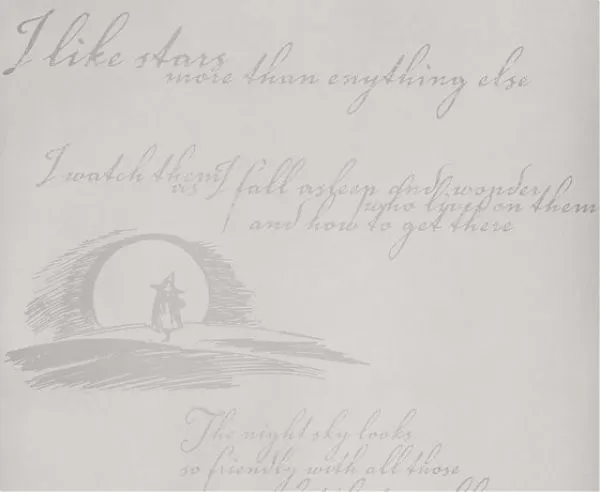 I like stars
more than enything else
I watch them
as I fall asleep and wonder
who lives on them
and how to get there
The night sky looks
so friendly with all those